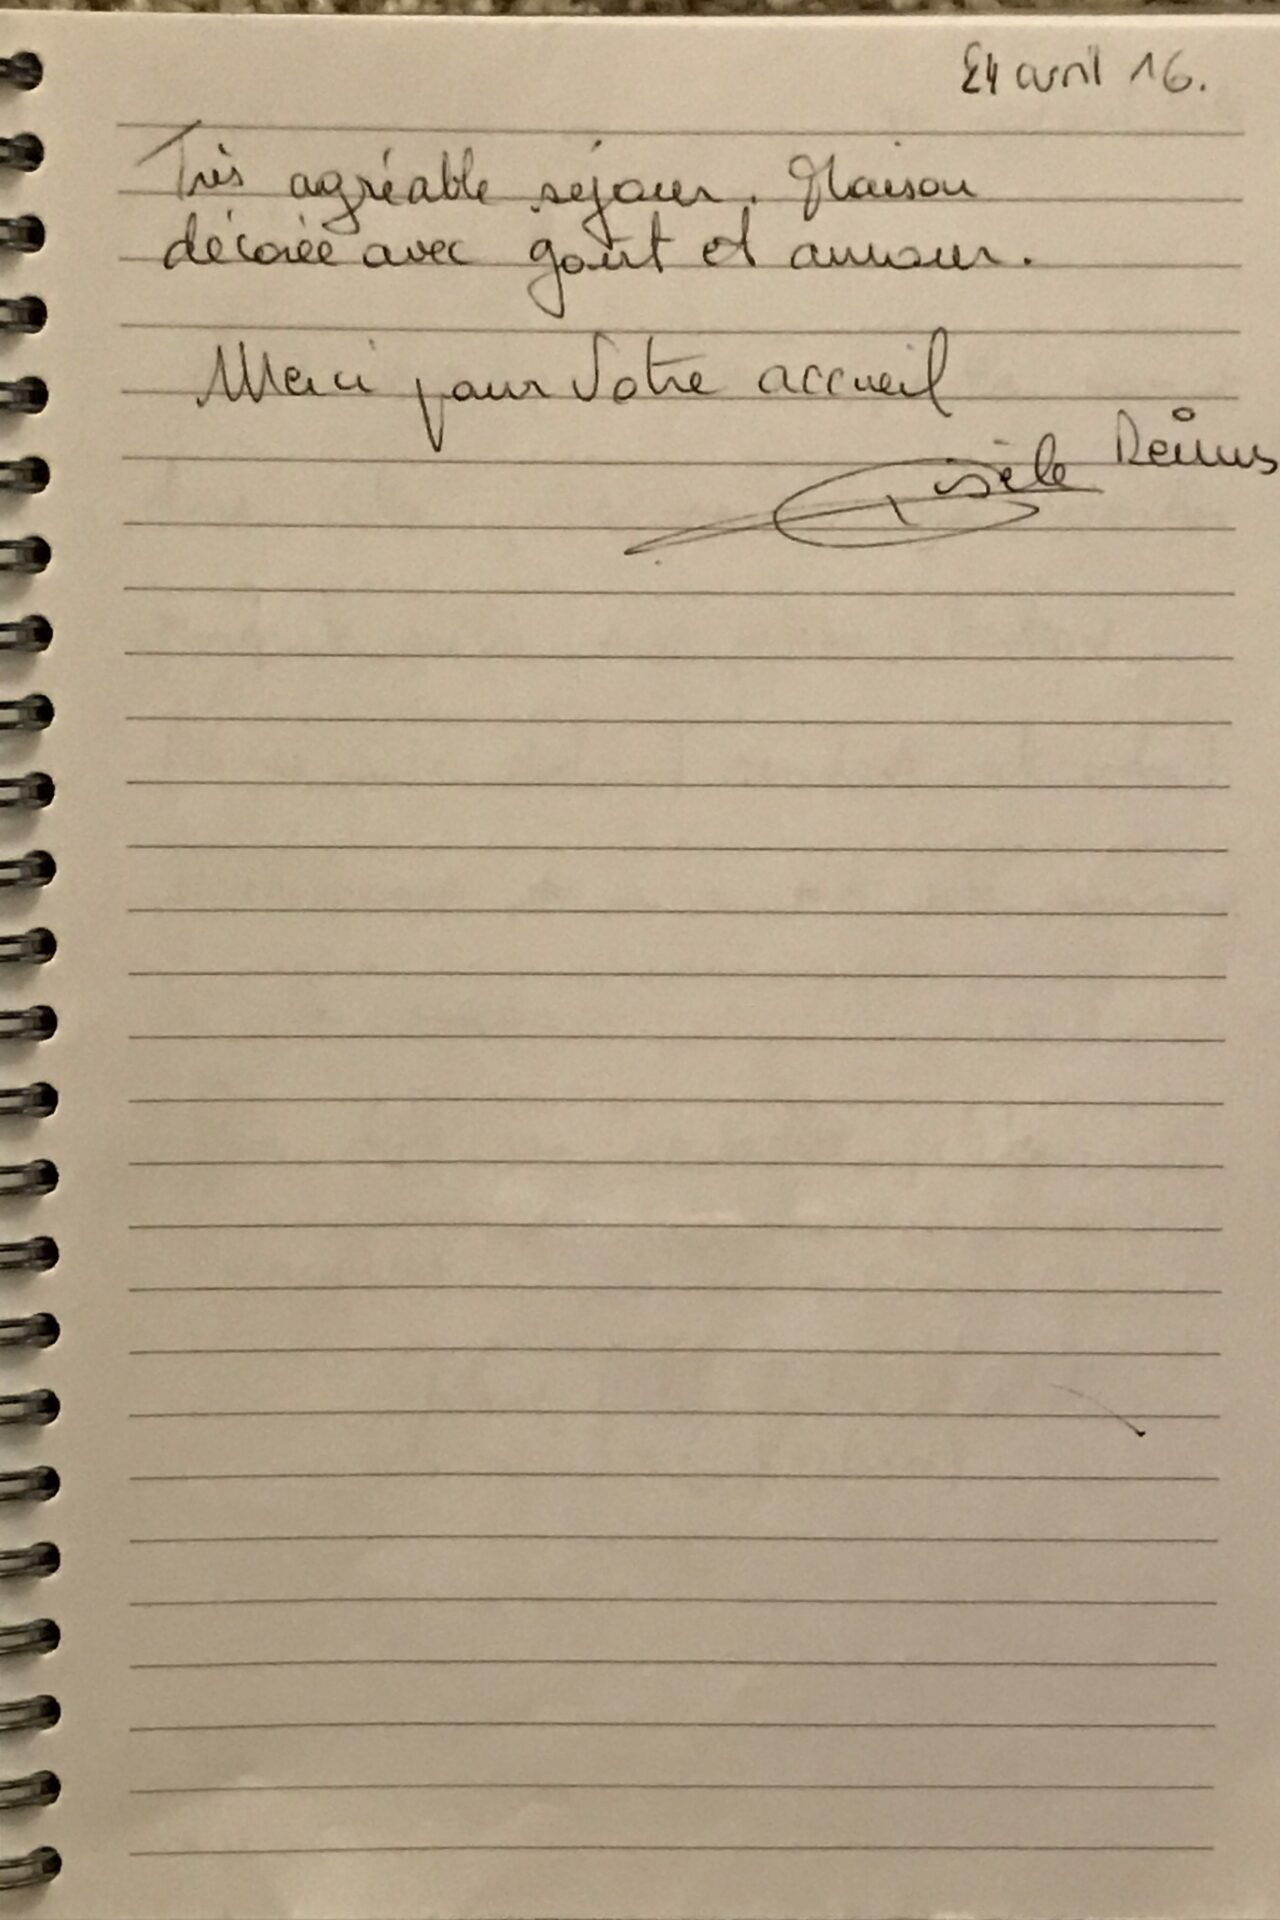 24 avril 16.
Très agréable séjour. Maison
décorée avec goût et amour.
Merci pour votre accueil
Gisèle Reims